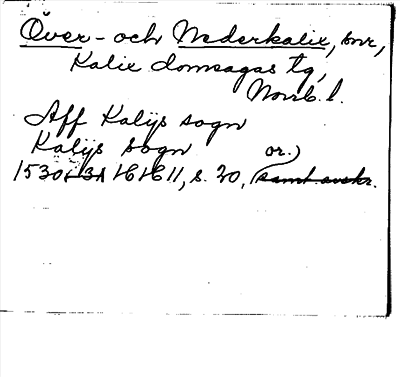 Över- och Nederkalix, snr,
Kalix domsagas tg,
Norrb. l.
Aff Kalijs sogn
Kalijs sogn
or.)
1530t 3A 1611, s. 20, (samt avskr.